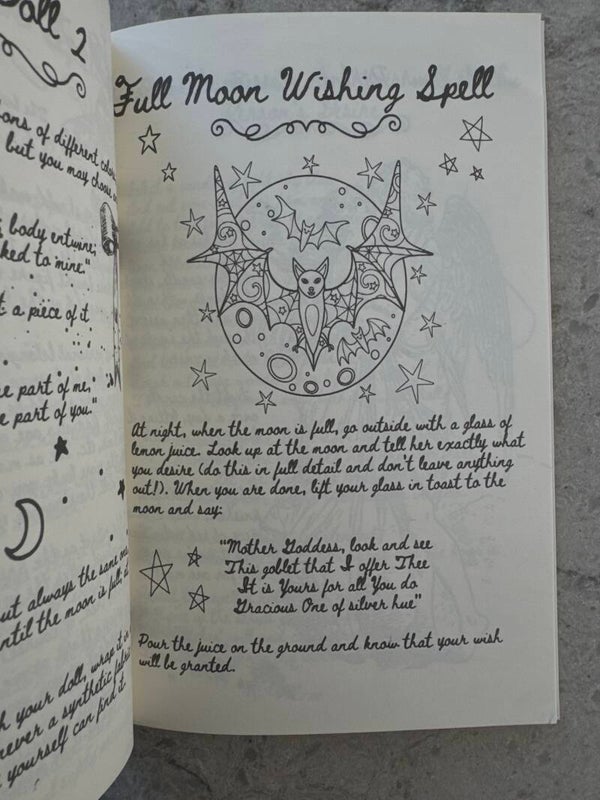 oll 2
of different
but you may choose
body entwine;
ked to mine."
t a piece of it
e part of me,
e part of you."
out always the same
until the moon is full,
your doll, wrap it in
never a synthetic
yourself can find it
Full Moon Wishing Spell
At night, when the moon is full, go outside with a glass of
lemon juice. Look up at the moon and tell her exactly what
you desire (do this in full detail and don't leave anything
out!). When you are done, lift your glass in toast to the
moon and say:
"Mother Goddess, look and see
This goblet that I offer Thee
It is Yours for all You do
Gracious One of silver hue"
Pour the juice on the ground and know that your wish
will be granted.